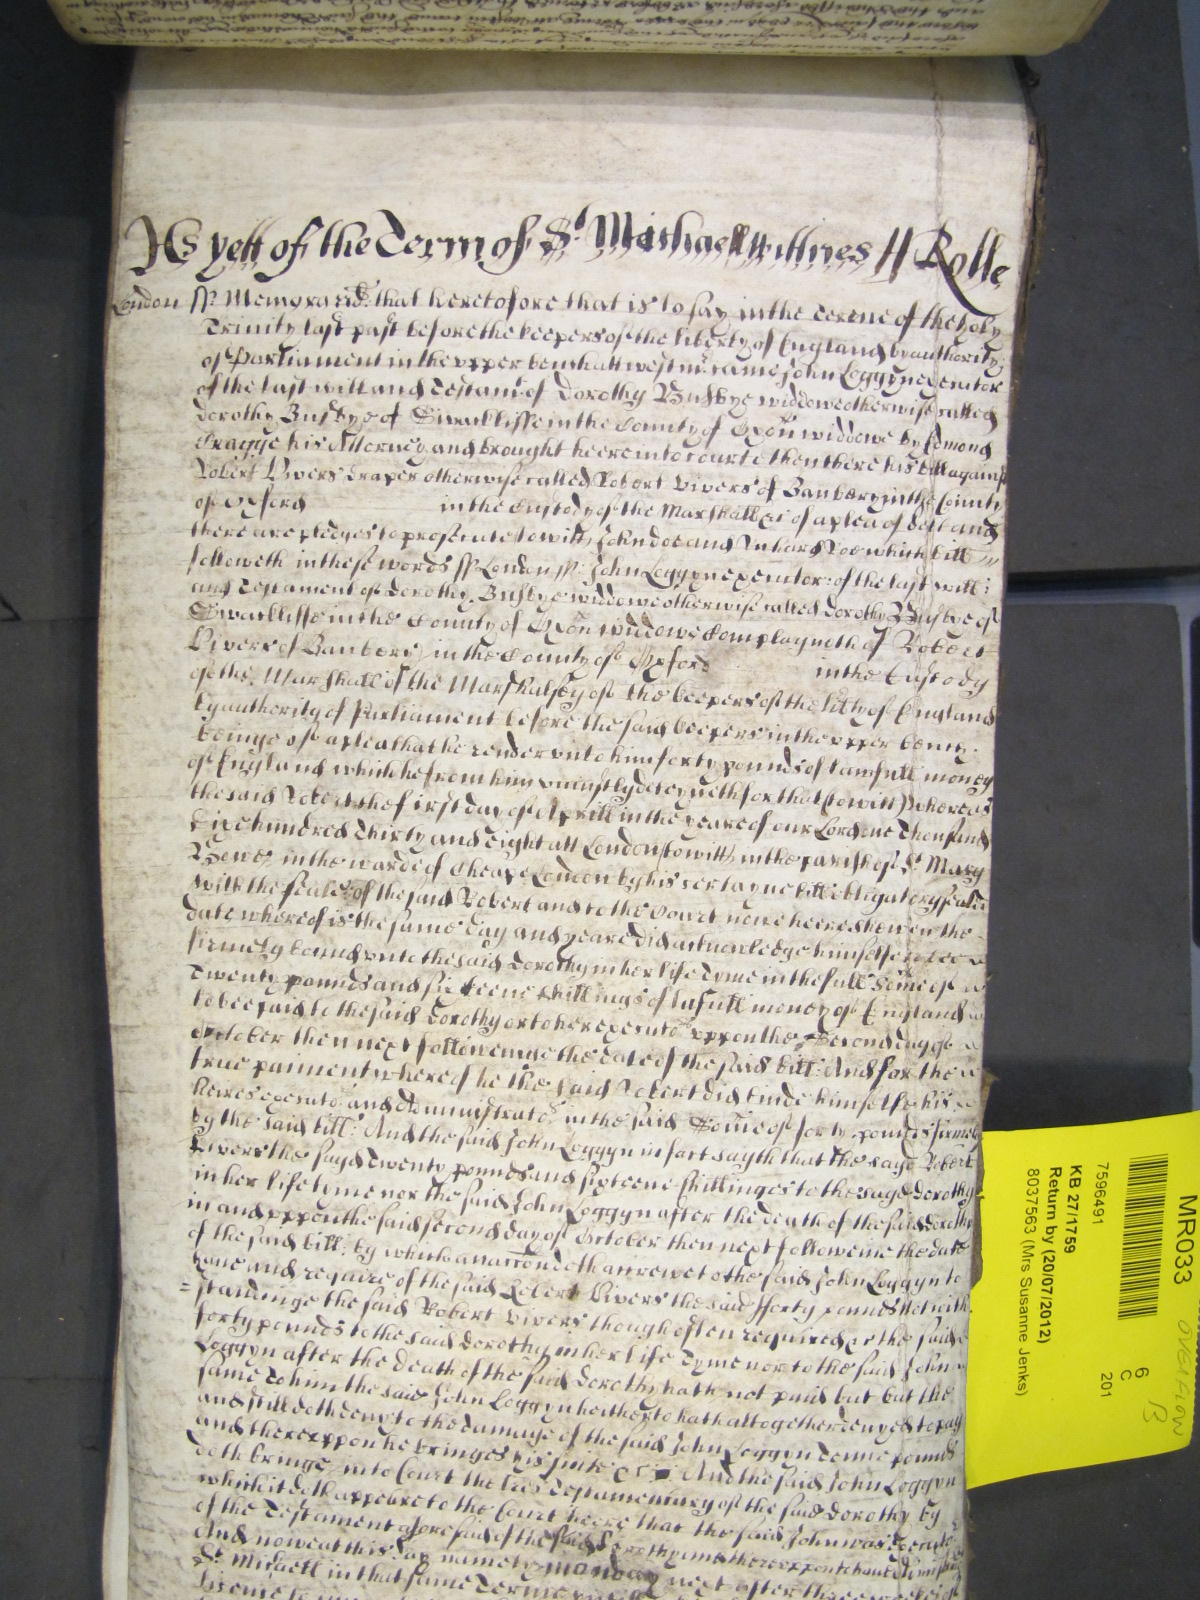 As yett of the Terme of St Michaell wittnes H Rolle
London ss Memorand that heretofore that is to say in the terme of the holy
Trinity last past before the keepers of the liberty of England by authority
of Parliament in the upper bench att westmr came John Loggyn executor
of the last will and Testamt of Dorothy Busbye widdowe otherwise called
dorothy Busbye of Swacliffe in the County of Oxon widdowe by Edmond
his Attorney and brought heere into court then there his bill against
Robert Vivers draper otherwise called Robert Vivers of Banbery in the County
of Oxford in the Custody of the Marshall &c of a plea of debt and
there are pledges to prosecute to witt John doe and Richard Roe which bill
followeth in these words ss London ss John Loggyn executor of the last will
and Testament of Dorothy Busbye widdowe otherwise called dorothy Busbye of
Swacliffe in the County of Oxon widdowe Complayneth of Robert
Vivers of Banbery in the County of Oxford in the Custody
of the Marshall of the Marshalsey of the keepers of the lity of England
by authority of Parliament before the said keepers in the upper bench
beinge of a plea that he render unto him forty pounds of lawfull money
of England which he from him uniustly deteyneth for that (to witt) whereas
the said Robert the first day of Aprill in the yeare of our Lord one Thousand
Sixe hundred Thirty and eight att London to witt in the parish of St Mary
Bowe in the warde of Cheape London by his certayne bill obligatory sealed
with the seale of the said Robert and to the Court nowe heere shewen the
date whereof is the same day and yeare did acknowledge himselfe to bee
firmely bound unto the said Dorothy in her life tyme in the full some of
Twenty pounds and sixteene shillings of lafull money of England
to bee paid to the said Dorothy or to her executors uppon the Second day of
October then next followeinge the date of the said bill And for the
true paiment whereof he the said Robert did binde himselfe his
heires executors and Administrators in the said Some of forty pounds firmely
by the said bill And the said John Loggyn in fact sayth that the sayd Robert
Vivers the sayd Twenty pounds and sixteene shillinges to the sayd dorothy
in her life tyme nor the said John Loggyn after the death of the said dorothy
in and uppon the said second day of October then next followeinge the date
of the said bill by which an accon doth accrewe to the said John Loggyn to
have and require of the said Robert Vivers the said fforty pounds Notwith
=standinge the said Robert Vivers though often required the said
forty pounds to the said dorothy in her life tyme nor to the said John
Loggyn after the death of the said Dorothy hath not paid but but the
same to him the said John Loggyn heitherto hath altogether denyed to pay
and still doth deny to the damage of the said John Loggyn tenne pounds
and thereuppon he bringes his suite &c And the said John Loggyn
doth bringe into Court the lres Testamentary of the said dorothy by
which it doth appeare to the Court heere that the said John was Executor
of the Testament aforesaid of the said Dorothy and thereuppon
And now att this day namely monday next after three weekes of
St Michaell in that same Terme
MR033
OVERFLOW
13
6
C
201
7596491
KB 27/1759
Return by (20/07/2012)
8037563 (Mrs Susanne Jenks)